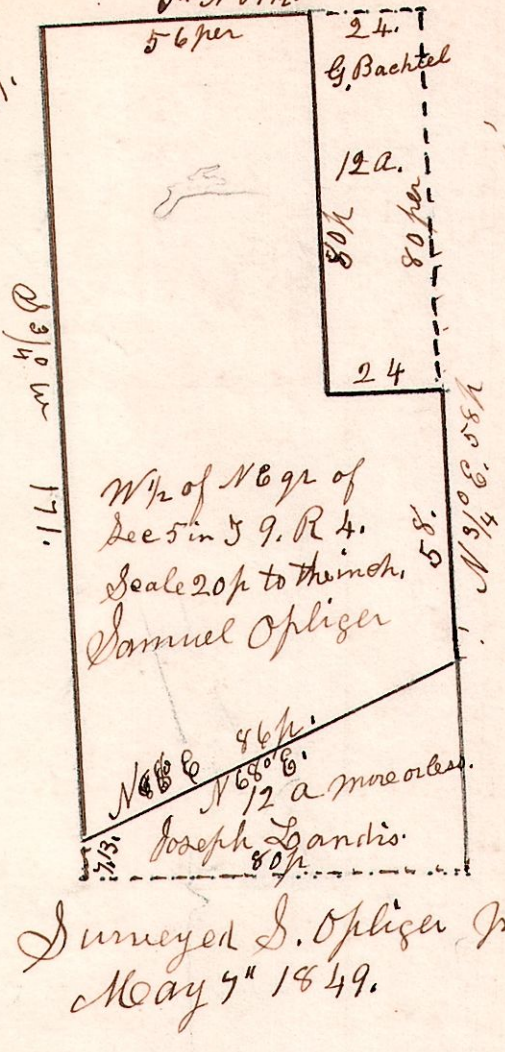 56 per
24.
G. Bachtel
12 a.
80 p
80 per
24
S 3/4° W 171.
N 3/4° E 58 p
58.
W ½ of NE qr of
Sec 5 in T 9. R 4.
Scale 20 p to the inch.
Samuel Opliger
86 p.
N 68° E.
12 a more or less.
Joseph Landis.
80 p
Surveyed S. Opliger
May 7" 1849.